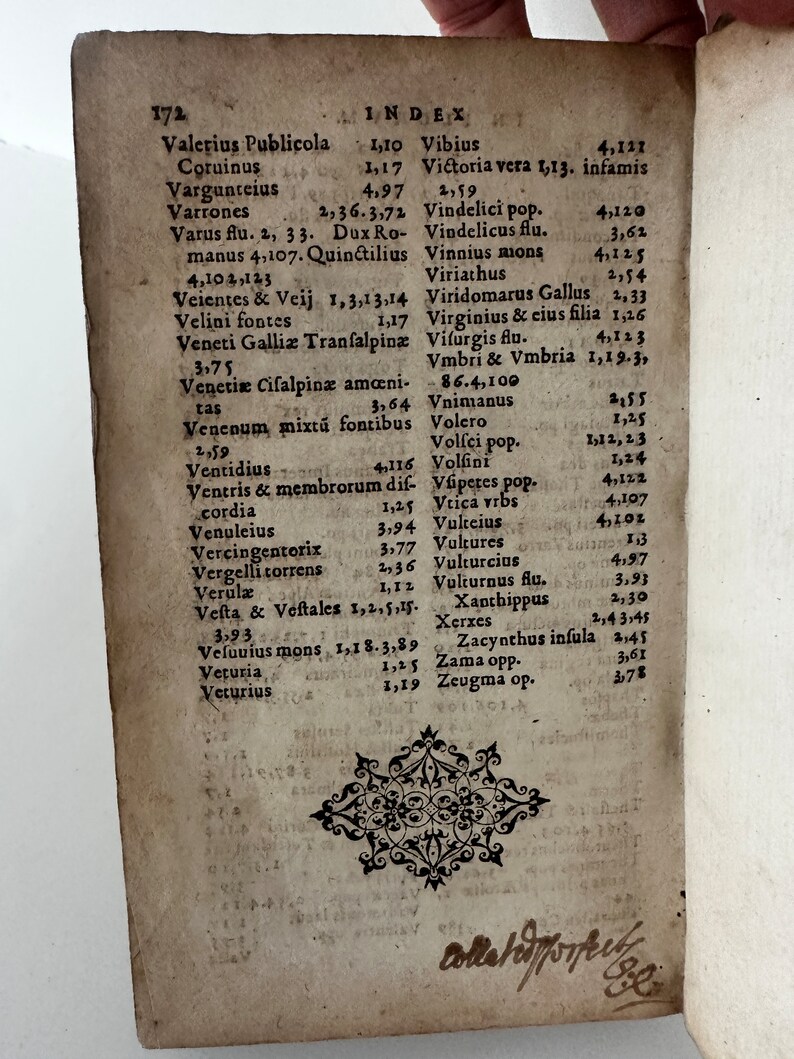 172
INDEX
Valerius Publicola 1,10
Coruinus 1,17
Vargunteius 4,97
Varrones 2,36.3,72
Varus flu. 2, 33. Dux Ro-
manus 4,107. Quinctilius
4,102,123
Veientes & Veij 1,3,13,14
Velini fontes 1,17
Veneti Galliæ Tranſalpinæ
3,75
Venetiæ Ciſalpinæ amœni-
tas 3,64
Venenum mixtū fontibus
2,59
Ventidius 4,116
Ventris & membrorum diſ-
cordia 1,25
Venuleius 3,94
Vercingentorix 3,77
Vergelli torrens 2,36
Verulæ 1,12
Veſta & Veſtales 1,2,5,15.
3,93
Veſuuius mons 1,18.3,89
Veturia 1,25
Veturius 1,19
Vibius 4,121
Victoria vera 1,13. infamis
2,59
Vindelici pop. 4,120
Vindelicus flu. 3,62
Vinnius mons 4,125
Viriathus 2,54
Viridomarus Gallus 2,33
Virginius & eius filia 1,26
Viſurgis flu. 4,123
Vmbri & Vmbria 1,19.3,
86.4,100
Vnimanus 2,55
Volero 1,25
Volſci pop. 1,12,23
Volſini 1,24
Vſipetes pop. 4,122
Vtica vrbs 4,107
Vulteius 4,102
Vultures 1,3
Vulturcius 4,97
Vulturnus flu. 3,93
Xanthippus 2,30
Xerxes 2,43,45
Zacynthus inſula 2,45
Zama opp. 3,61
Zeugma op. 3,78
collated perfect